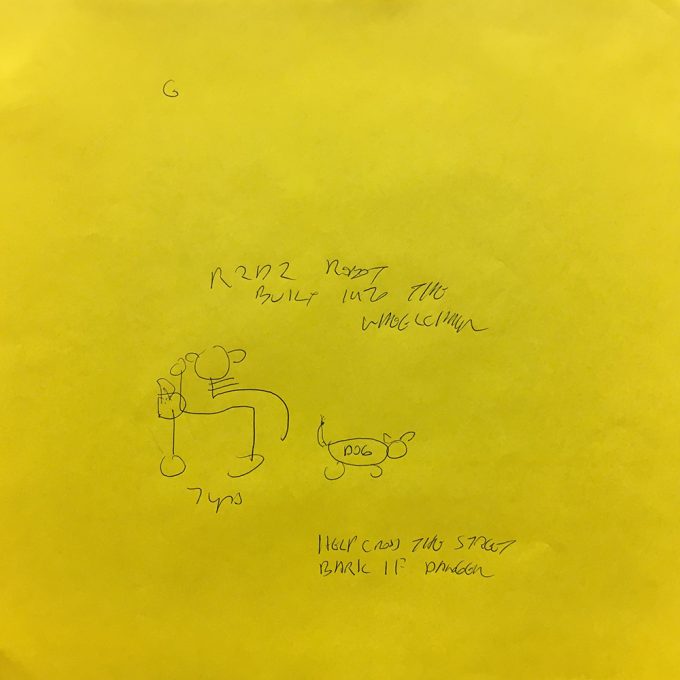 G
R2D2 ROBOT
BUILT INTO THE
WHEELCHAIR
DOG
7 yrs
HELP CROSS THE STREET
BARK IF DANGER